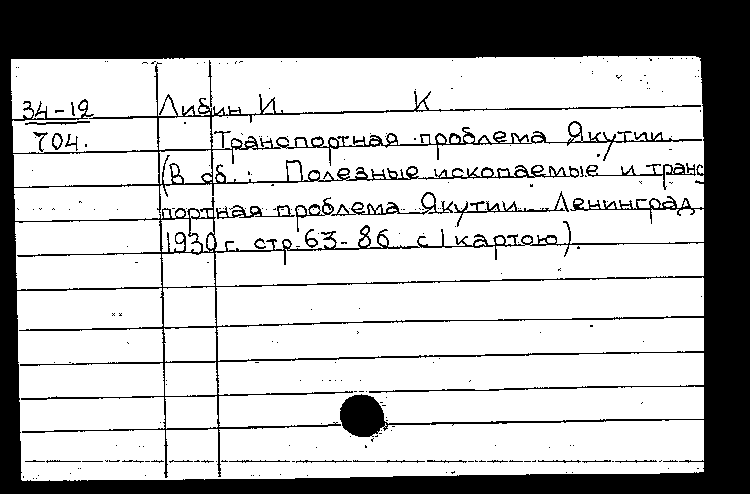 34-12 Либин, И. К
704. Транспортная проблема Якутии.
(В сб.: Полезные ископаемые и транс
портная проблема Якутии. Ленинград
1930 г. стр. 63-86 с 1 картою).